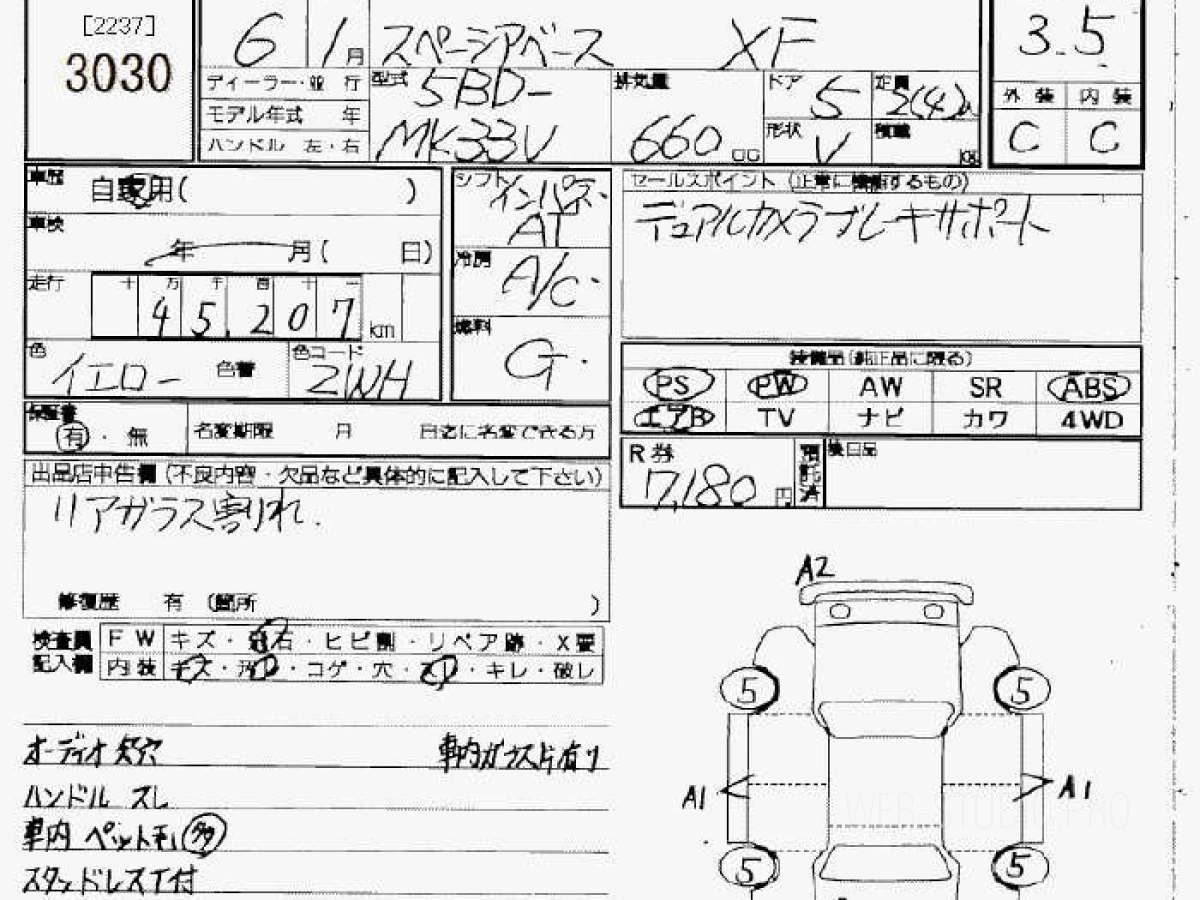 [2237]
3030
6 1月 スペーシアベース XF
3.5
ディーラー・並 行
モデル年式 年
ハンドル 左・右
型式 5BD-
MK33V
排気量 660 cc
ドア 5
定員 2(4)人
形状 V
積載 kg
外装 内装
C C
車歴 自家用( )
車検 年 月( 日)
走行 十 万 千 百 十 一
45,207 km
色 イエロー 色替
色コード ZWH
シフト インパネ・AT
冷房 A/C・
燃料 G・
セールスポイント (正常に機能するもの)
デュアルカメラブレーキサポート
装備品(純正品に限る)
PS PW AW SR ABS
エアB TV ナビ カワ 4WD
保証書 有・無 名変期限 月 日迄に名変できる方
R券 7,180 円 預託済
後日品
出品店申告欄(不良内容・欠品など具体的に記入して下さい)
リアガラス割れ.
修復歴 有 (箇所 )
検査員記入欄
FW キズ・飛石・ヒビ割・リペア跡・X要
内装 キズ・汚レ・コゲ・穴・スレ・キレ・破レ
オーディオ欠穴 車内ガラス片有り
ハンドル スレ
車内 ペット毛 多
スタッドレスT付
A2
5 5
A1 A1
5 5
WEB-STUDIO.PRO